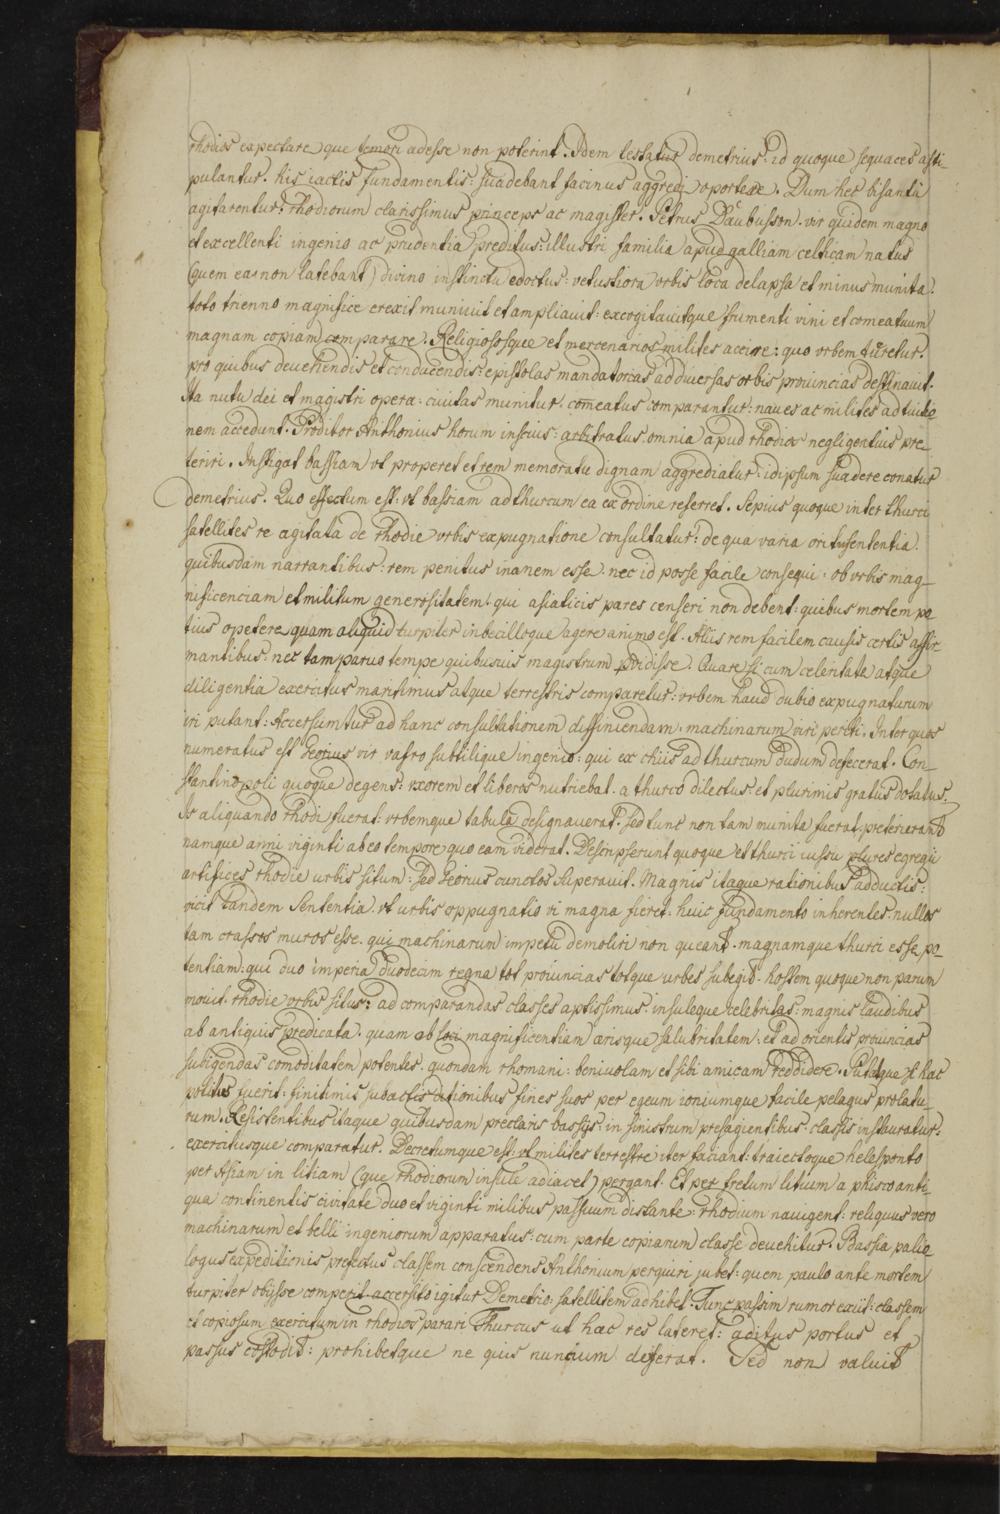 rhodios expectare que temori adesse non poterint. Idem testatur demetrius. id quoque sequaces asti-
pulantur. his iactis fundamentis: suadebant facinus aggredi oportere. Dum hec bisantii
agitarentur: rhodiorum clarissimus princeps ac magister. Petrus Daubusson. vir quidem magno
et excellenti ingenio ac prudentia preditus: illustri familia apud galliam celticam natus
(quem ea non latebant) divino instinctu edoctus: vetustiora vrbis loca delapsa et minus munita.
toto trienno magnifice erexit muniuit et ampliauit: excogitauitque frumenti vini et comeatuum
magnam copiam comparare. Religiososque et mercenarios milites accire: quo vrbem turetur.
pro quibus deuehendis et conducendis: epistolas mandatorias ad diuersas orbis prouincias destinauit.
Ita nutu dei et magistri opera: ciuitas munitur. comeatus comparantur: naues ac milites ad tuitio-
nem accedunt. Proditor Anthonius horum inscius: arbitratus omnia apud rhodios negligentius pre-
teriri. Instigat bassiam vt properet et rem memoratu dignam aggrediatur: idipsum suadere conatur
demetrius. Quo effectum est: vt bassiam ad thurcum ea ex ordine referret. Sepius quoque inter thurci
satellites re agitata de rhodie vrbis expugnatione consultatur: de qua varia oritur sententia.
quibusdam narrantibus: rem penitus inanem esse. nec id posse facile consequi. ob vrbis mag-
nificenciam et militum generositatem. qui asiaticis pares censeri non debent: quibus mortem po-
tius opetere quam aliquid turpiter inbecilleque agere animo est. Aliis rem facilem causis certis affir-
mantibus: nec tam paruo tempe quibusuis magistrum pvidisse. Quare si cum celeritate atque
diligentia exercitus maritimus atque terrestris comparetur: vrbem haud dubio expugnaturum
iri putant: Accersuntur ad hanc consultationem diffiniendam. machinarum viri periti. Inter quos
numeratus est Georius vir vafro subtilique ingenio: qui ex chiis ad thurcum dudum defecerat. Con-
stantinopoli quoque degens: uxorem et liberos nutriebat. a thurco dilectus et plurimis gratiis dotatus.
Is aliquando rhodi fuerat: vrbemque tabula designauerat. sed tunc non tam munita fuerat. preterierant
namque anni viginti ab eo tempore quo eam viderat. Descripserunt quoque et thurci iussu plures egregii
artifices rhodie urbis situm: sed Georius cunctos superauit. Magnis itaque rationibus adductis:
vicit tandem Sententia. vt urbis oppugnatio vi magna fieret. huic fundamento inherentes. nullos
tam crassos muros esse. qui machinarum impetu demoliri non queant. magnamque thurci esse po-
tentiam: qui duo imperia duodecim regna tot prouincias totque urbes subegit. hostem quoque non parum
mouit. rhodie orbis situs: ad comparandas classes aptissimus. insuleque celebritas: magnis laudibus
ab antiquis predicata. quam ob loci magnificentiam aerisque salubritatem: et ad orientis prouincias
subigendas comoditatem potentes. quondam rhomani: beniuolam et sibi amicam reddidere. Putatque si hac
potitus fuerit: finitimis subactis ditionibus fines suos per egeum ioniumque facile pelagus prolatu-
rum. Resistentibus itaque quibusdam preclaris bassijs. in sinistrum presagientibus. classis instauratur:
exercitusque comparatur. Decretumque est: vt milites terrestre iter faciant: traiectoque helesponto
per Asiam in litiam (que rhodiorum insule adiacet) pergant. Et per fretum litium a phisco anti-
qua continentis ciuitate duo et viginti milibus passuum distante: rhodium nauigent: reliquus vero
machinarum et belli ingeniorum apparatus: cum parte copiarum classe deuehitur. Bassia paleo-
logus expeditionis prefectus classem conscendens Anthonium perquiri jubet: quem paulo ante mortem
turpiter obijsse comperit. accersito igitur Demetrio: satellitem adhibet. Tunc passim rumor exiit: classem
et copiosum exercitum in rhodios parari Thurcus ut hæc res lateret: aditus portus et
passus costodit: prohibetque ne quis nuncium deferat. Sed non valuit